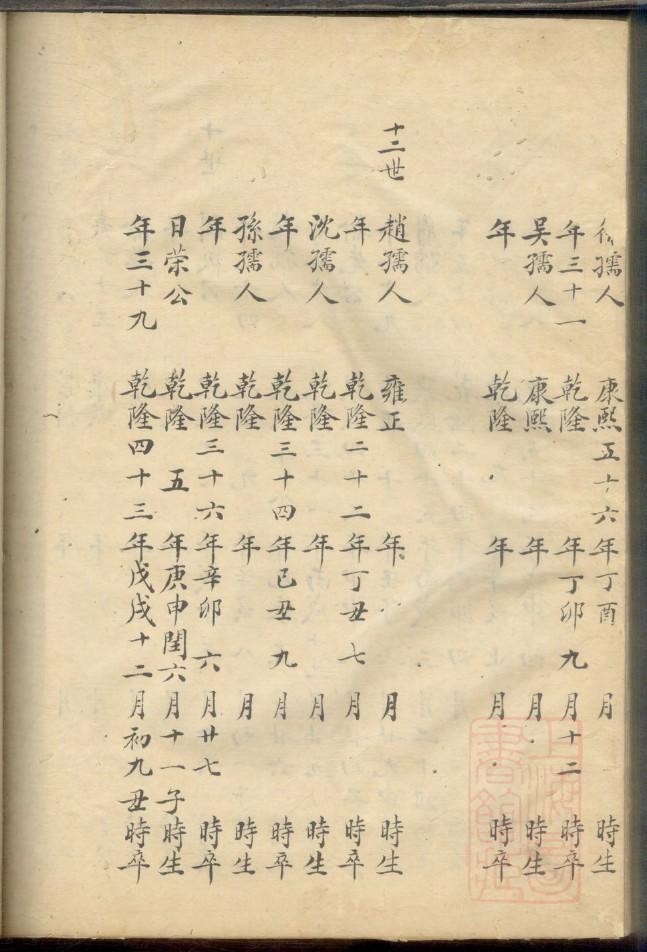 孺人 康熙五十六年丁酉 月 時生
年三十一 乾隆 年丁卯九月十二 時卒
吳孺人 康熙 年 月 時生
年 乾隆 年 月 時卒
十二世
趙孺人 雍正 年 月 時生
年 乾隆二十二年丁丑七月 時卒
沈孺人 乾隆 年 月 時生
年 乾隆三十四年己丑九月 時卒
孫孺人 乾隆 年 月 時生
年 乾隆三十六年辛卯六月廿七 時卒
日荣公 乾隆 五年庚申閏六月十一子時生
年三十九 乾隆四十三年戊戌十二月初九丑時卒
上海圖
書館藏